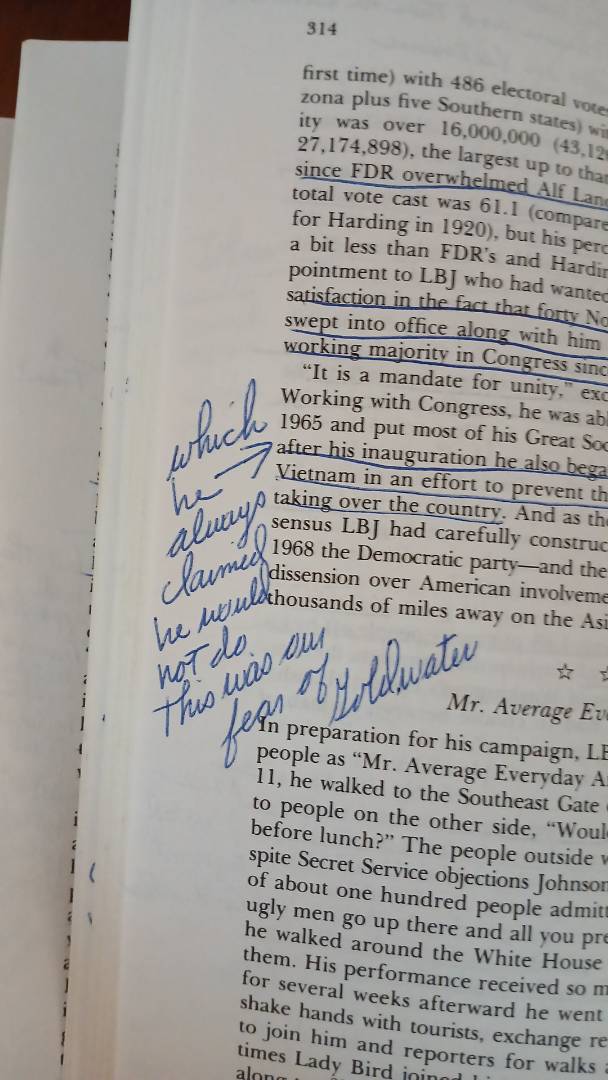 314
first time) with 486 electoral votes
zona plus five Southern states)
ity was over 16,000,000
27,174,898), the largest up to
since FDR overwhelmed Alf
total vote cast was 61.1
for Harding in 1920), but his
a bit less than FDR's and
pointment to LBJ who had wanted
satisfaction in the fact that forty
swept into office along with him
working majority in Congress
"It is a mandate for unity,"
Working with Congress, he was
1965 and put most of his Great
after his inauguration he also
Vietnam in an effort to prevent
taking over the country. And as
sensus LBJ had carefully
1968 the Democratic party—and the
dissension over American
thousands of miles away on the
which
he →
always
claimed
he would
not do.
This was our
fear of Goldwater
☆
Mr. Average
In preparation for his campaign,
people as "Mr. Average Everyday
11, he walked to the Southeast Gate
to people on the other side,
before lunch?" The people outside
spite Secret Service objections Johnson
of about one hundred people
ugly men go up there and all you
he walked around the White House
them. His performance received so
for several weeks afterward he went
shake hands with tourists, exchange
to join him and reporters for walks
times Lady Bird